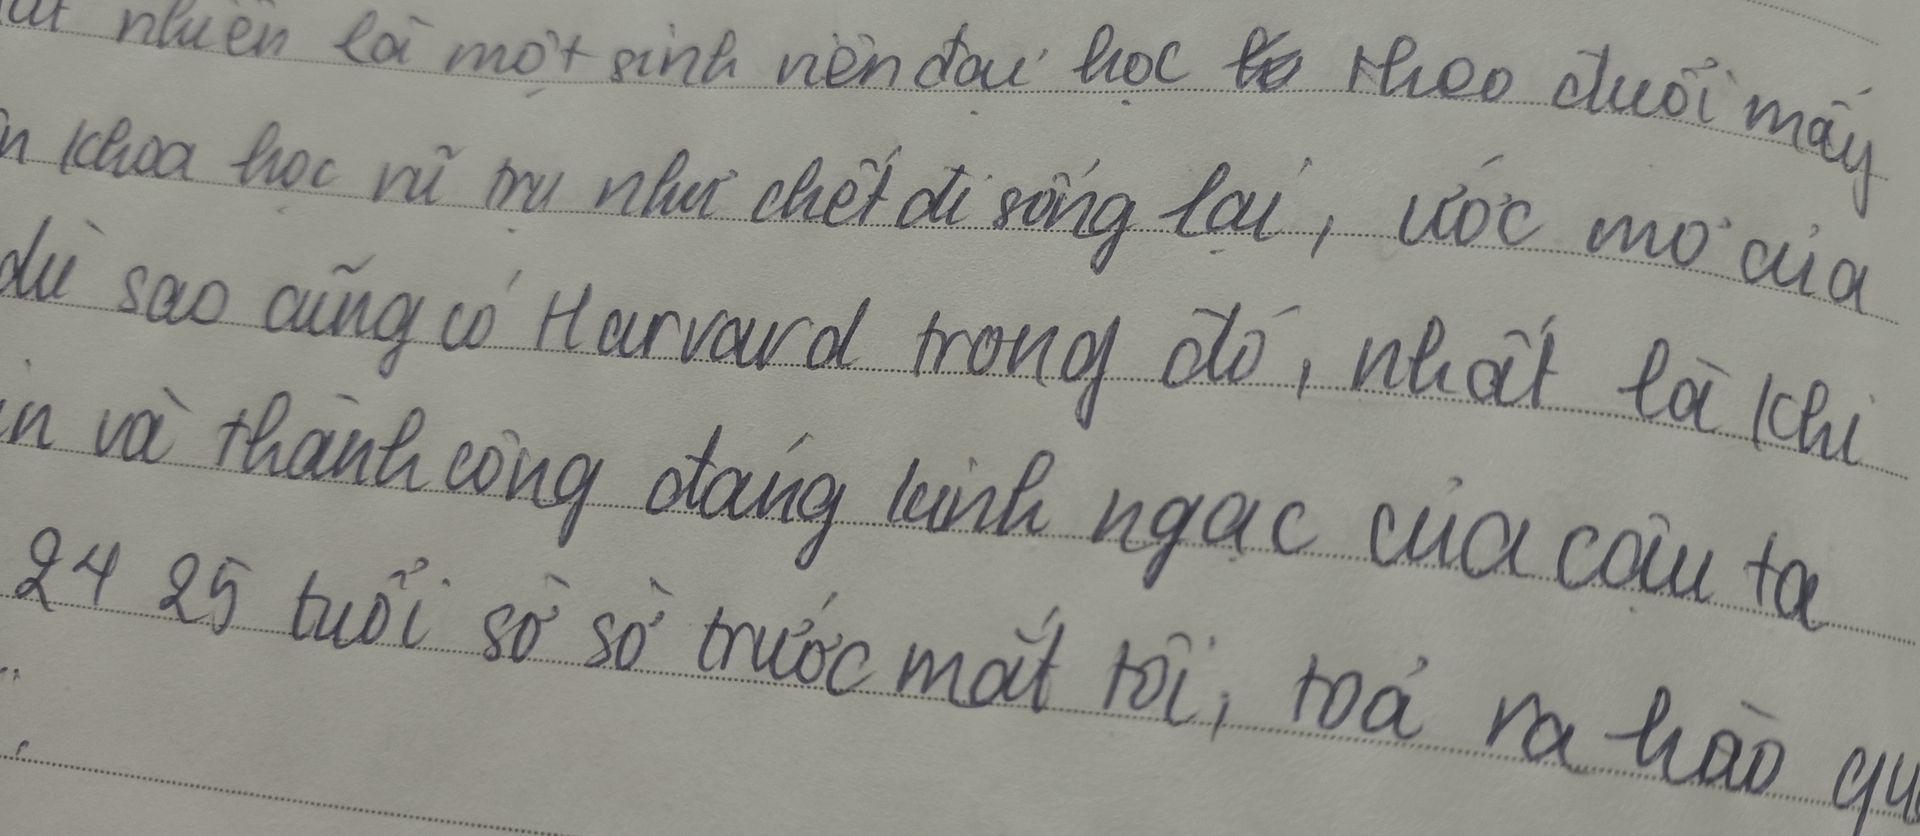 nhiên là một sinh viên đại học theo đuổi mấy
khoa học vũ trụ như chết đi sống lại, ước mơ của
dù sao cũng có Harvard trong đó, nhất là khi
và thành công đáng kinh ngạc của cậu ta
24 25 tuổi sờ sờ trước mắt tôi, toả ra hào